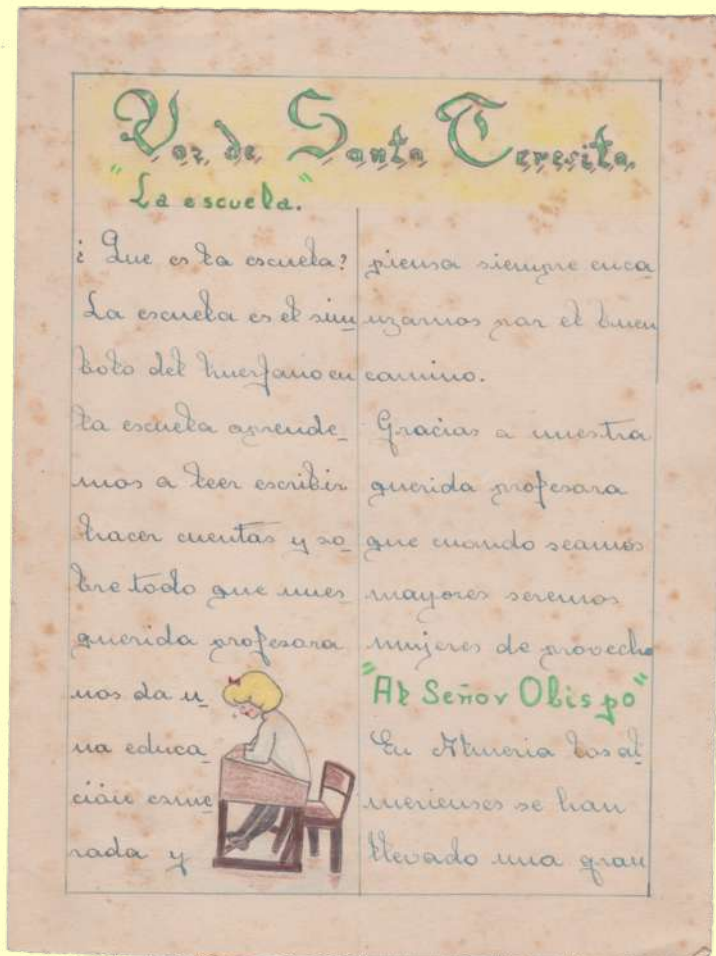 Voz de Santa Teresita
"La escuela."
¿Que es la escuela?
La escuela es el sim
bolo del huerfano en
la escuela aprende_
mos a leer escribir
hacer cuentas y so_
bre todo que nues_
querida profesora
nos da u_
na educa_
ción esme_
rada y
piensa siempre enca
uzarnos por el buen
camino.
Gracias a nuestra
querida profesora
que cuando seamos
mayores seremos
mujeres de provecho
"Al Señor Obispo"
En Almeria los al_
merienses se han
llevado una gran